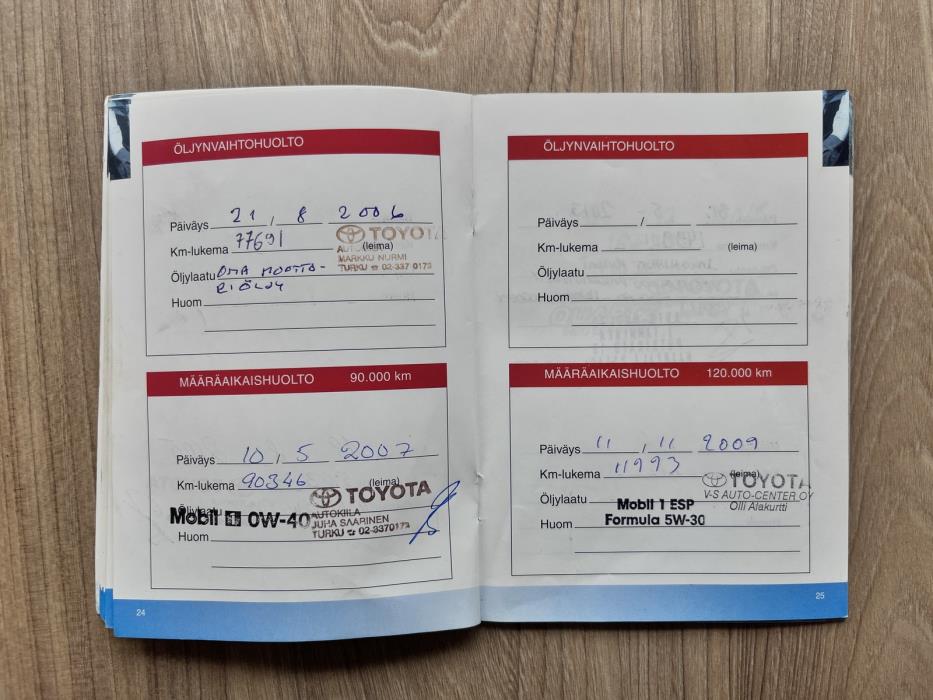 ÖLJYNVAIHTOHUOLTO
Päiväys 21 / 8 2006
Km-lukema 77691
(leima)
TOYOTA
MARKKU NURMI
TURKU ☎ 02-337 0173
Öljylaatu OMA MOOTTO-
RIÖLJY
Huom
MÄÄRÄAIKAISHUOLTO 90.000 km
Päiväys 10 / 5 2007
Km-lukema 90346
(leima)
TOYOTA
AUTOKIILA
JUHA SAARINEN
TURKU ☎ 02-3370173
Öljylaatu
Mobil 1 0W-40
Huom
24
ÖLJYNVAIHTOHUOLTO
Päiväys /
Km-lukema
(leima)
Öljylaatu
Huom
MÄÄRÄAIKAISHUOLTO 120.000 km
Päiväys 11 / 11 2009
Km-lukema 11993
(leima)
TOYOTA
V-S AUTO-CENTER OY
Olli Alakurtti
Öljylaatu
Mobil 1 ESP
Formula 5W-30
Huom
25